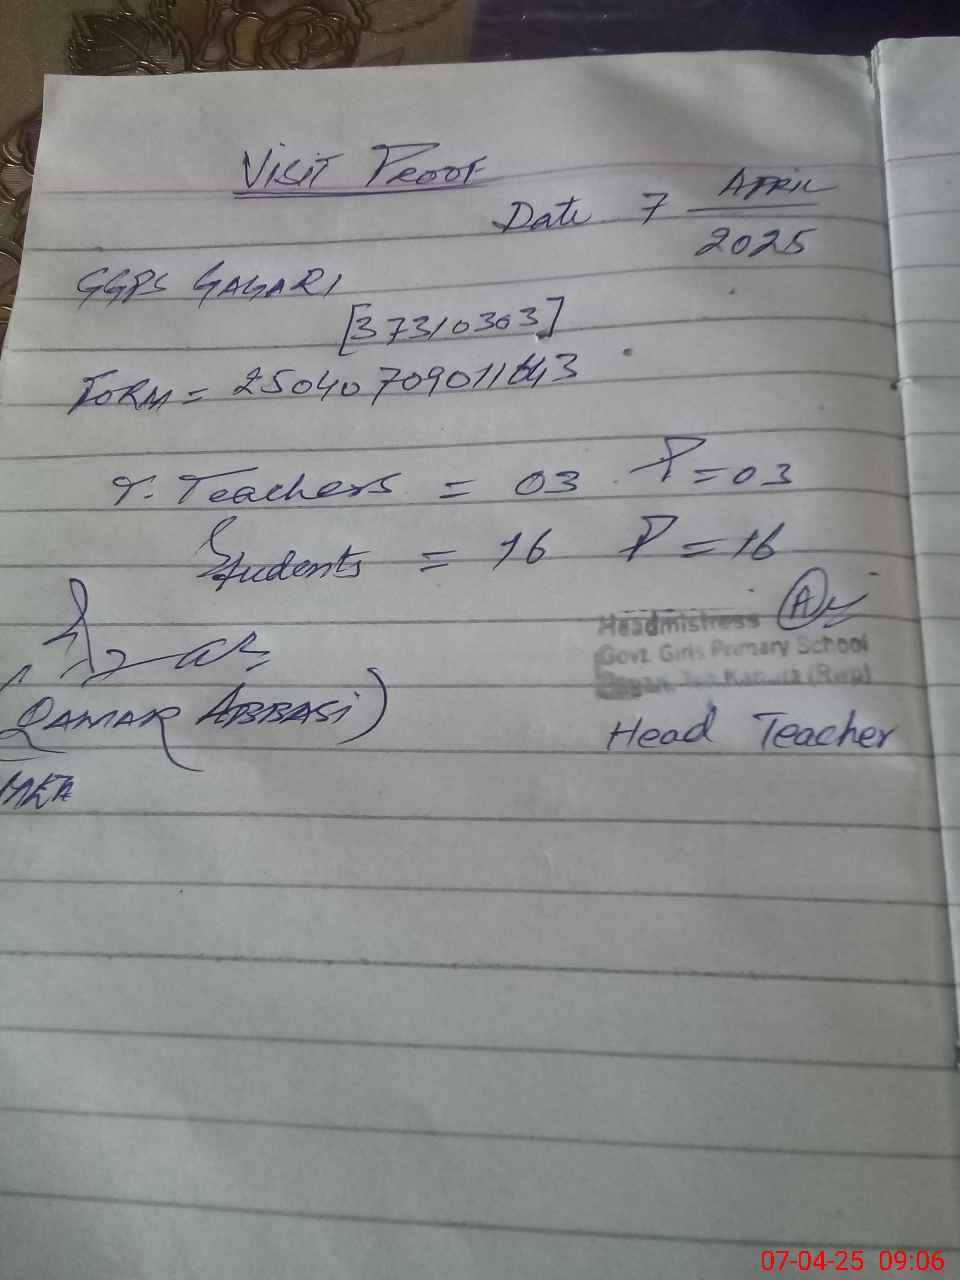 Visit Proof
Date 7 April
2025
GGPS GAGARI
[37310303]
FORM = 25040709011643
T. Teachers = 03 P = 03
Students = 16 P = 16
Headmistress
Govt Girls Primary School
(Rwp)
(QAMAR ABBASI)
Head Teacher
MEA
07-04-25 09:06